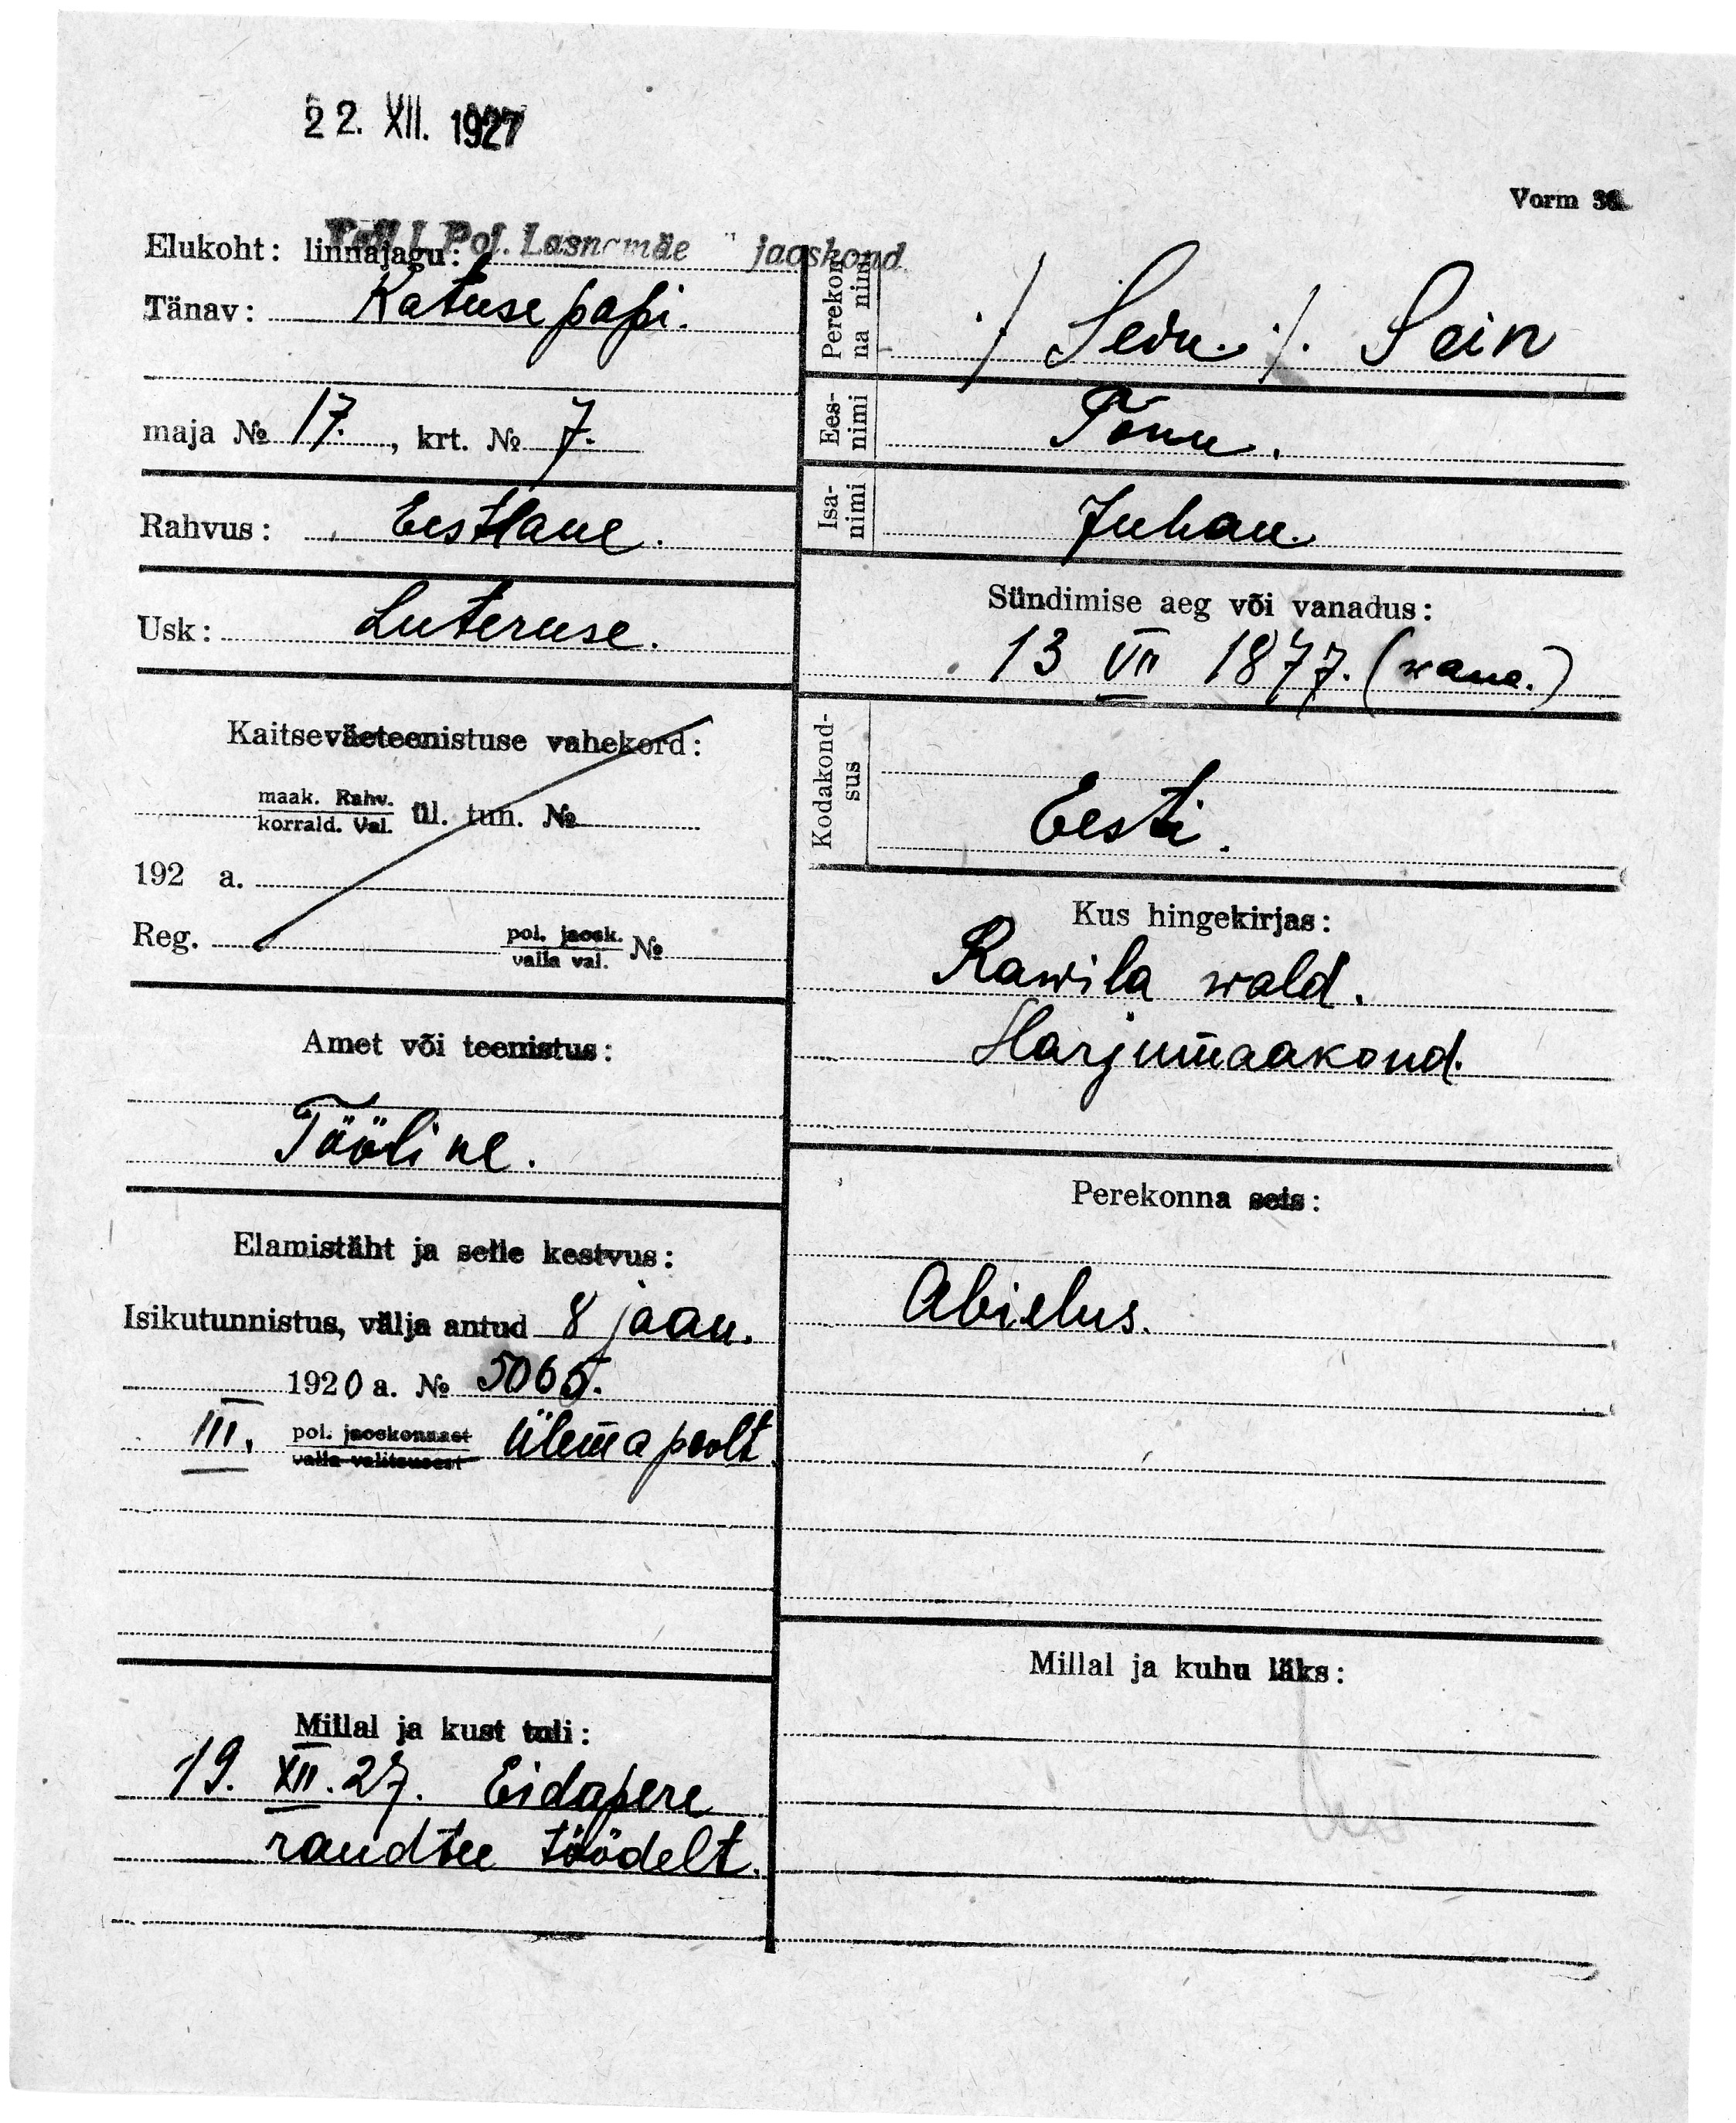 22. XII. 1927
Vorm
Elukoht: linnajagu: Tall. Pol. Lasnamäe " jaoskond.
Tänav: Katusepapi.
maja № 17., krt. № 7.
Rahvus: Eestlane.
Usk: Luteruse.
Kaitseväeteenistuse vahekord:
maak. Rahv.
korrald. Val. ül. tun. №
192 a.
Reg. pol. jaosk.
valla val. №
Amet või teenistus:
Tööline.
Elamistäht ja selle kestvus:
Isikutunnistus, välja antud 8 jaan.
1920 a. № 5065.
III. pol. jaoskonnast
valla valitsusest Ülema poolt
Millal ja kust tuli:
19. XII. 27. Eidapere
raudtee töödelt.
Perekon-
na nimi ./ Sein ./. Sein
Ees-
nimi Tõnu.
Isa-
nimi Juhan.
Sündimise aeg või vanadus:
13 VII 1877. (wana.)
Kodakond-
sus Eesti.
Kus hingekirjas:
Rawila wald.
Harjumaakond.
Perekonna seis:
Abielus.
Millal ja kuhu läks: